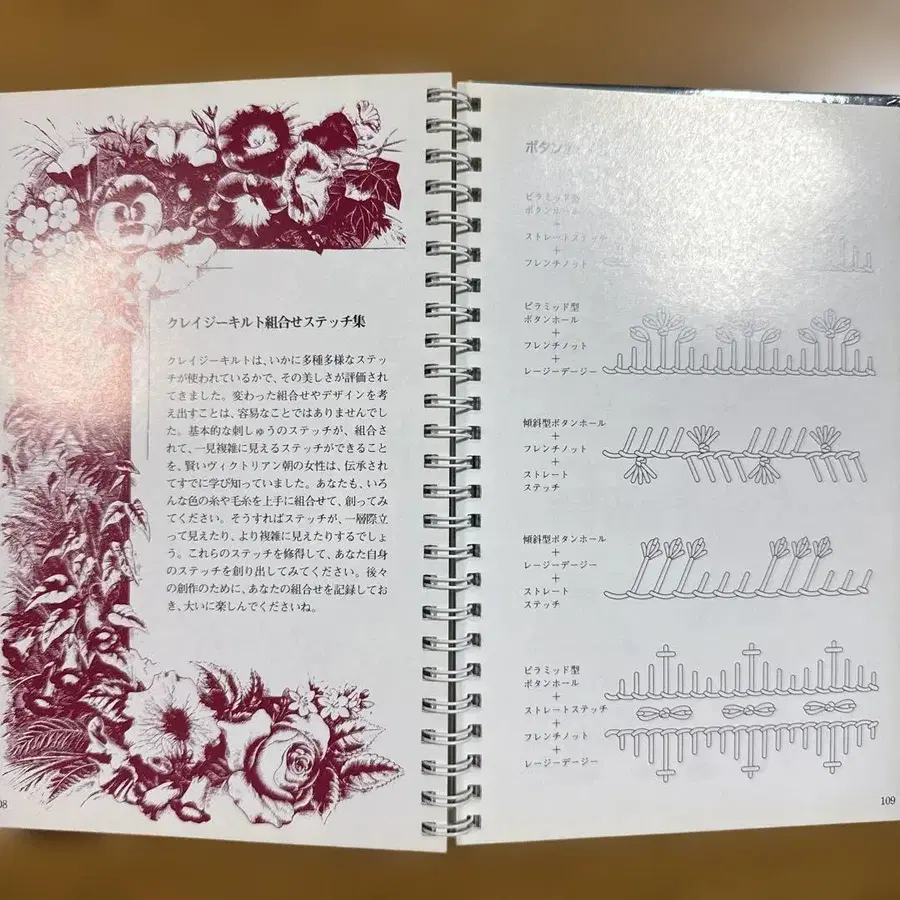 クレイジーキルト組合せステッチ集
クレイジーキルトは、いかに多種多様なステッ
チが使われているかで、その美しさが評価され
てきました。変わった組合せやデザインを考
え出すことは、容易なことではありませんでし
た。基本的な刺しゅうのステッチが、組合さ
れて、一見複雑に見えるステッチができること
を、賢いヴィクトリアン朝の女性は、伝承され
てすでに学び知っていました。あなたも、いろ
んな色の糸や毛糸を上手に組合せて、創ってみ
てください。そうすればステッチが、一層際立
って見えたり、より複雑に見えたりするでしょ
う。これらのステッチを修得して、あなた自身
のステッチを創り出してみてください。後々
の創作のために、あなたの組合せを記録してお
き、大いに楽しんでくださいね。
08
ボタン
ピラミッド型
ボタンホール
+
ストレートステッチ
+
フレンチノット
ピラミッド型
ボタンホール
+
フレンチノット
+
レージーデージー
傾斜型ボタンホール
+
フレンチノット
+
ストレート
ステッチ
傾斜型ボタンホール
+
レージーデージー
+
ストレート
ステッチ
ピラミッド型
ボタンホール
+
ストレートステッチ
+
フレンチノット
+
レージーデージー
109